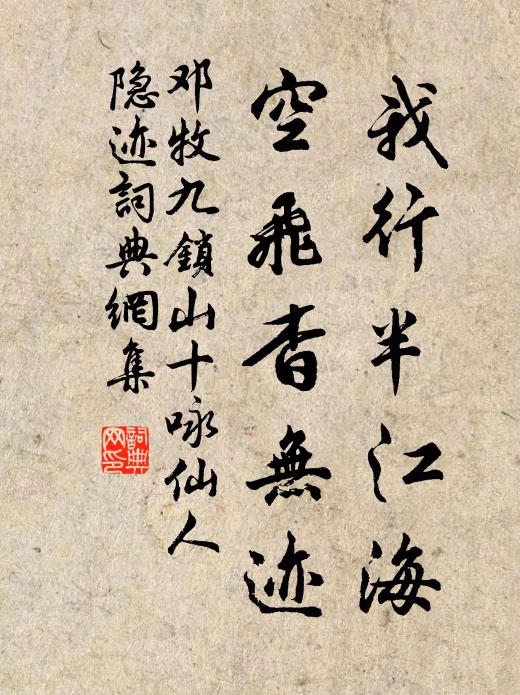 我行半江海
空飛杳無迹
邓牧九鎖山十咏仙人
隐迹詞典網集
詞典网印